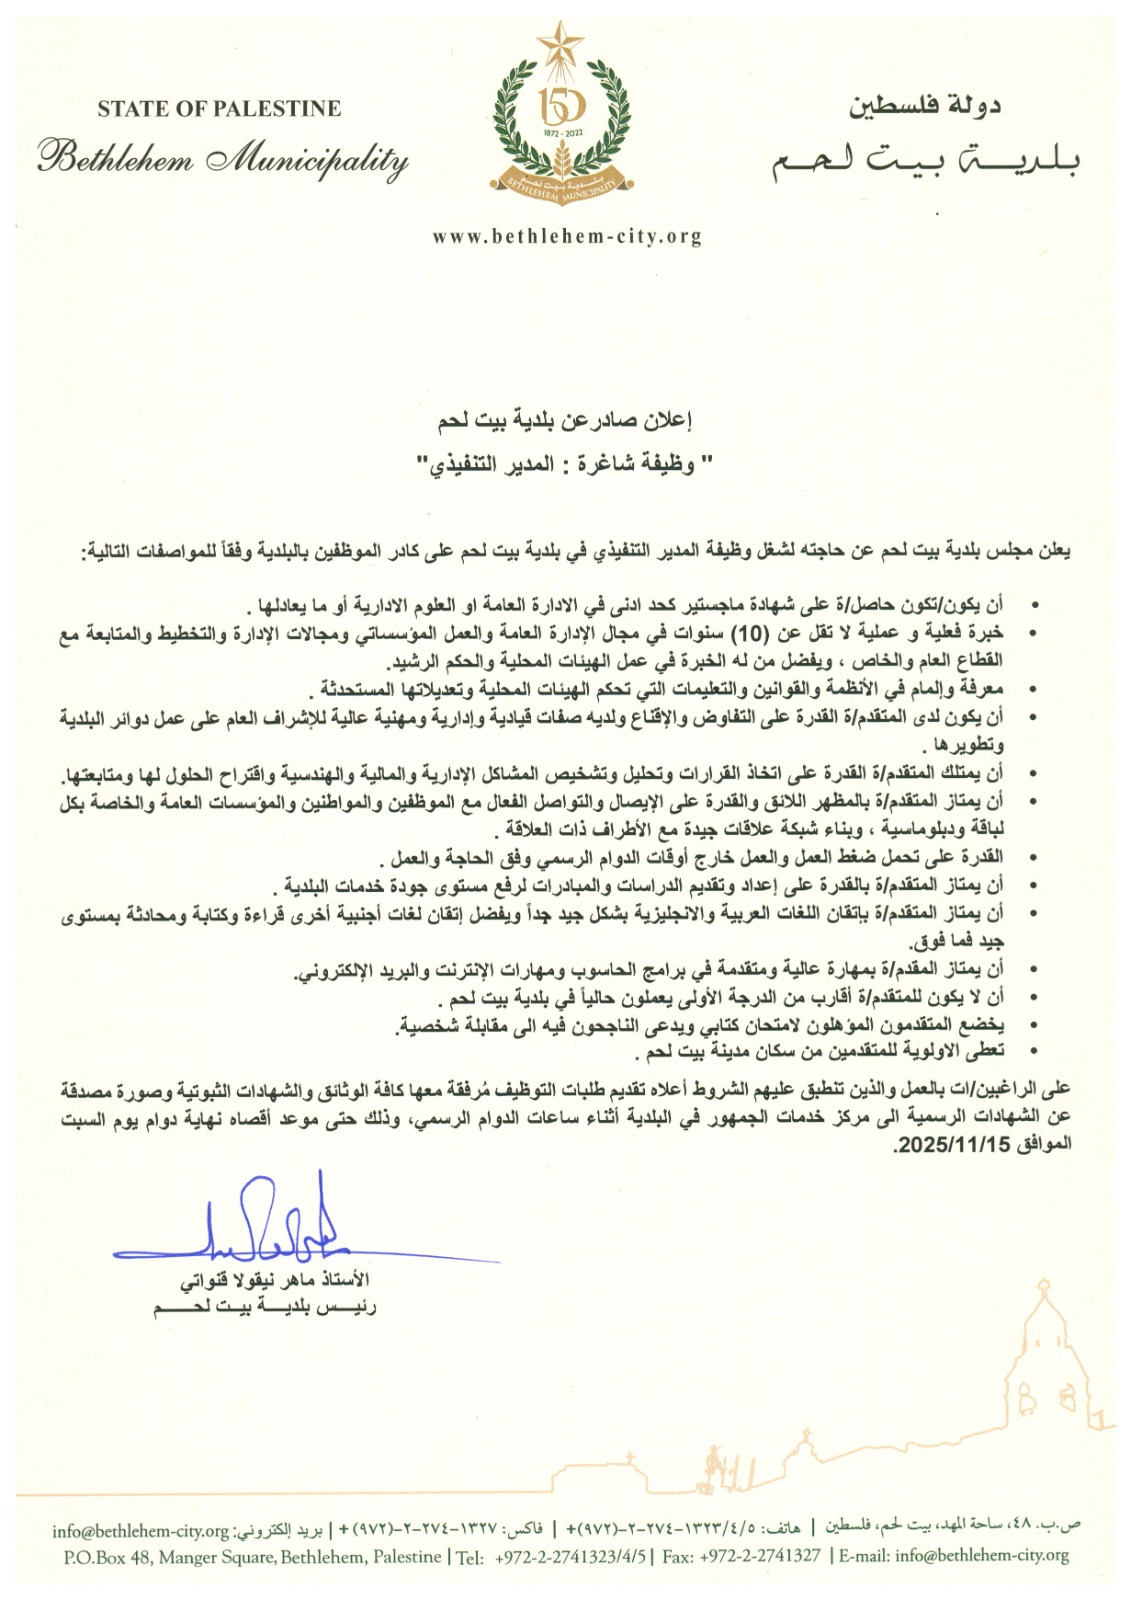 STATE OF PALESTINE
Bethlehem Municipality
150
1872 - 2022
بلدية بيت لحم
BETHLEHEM MUNICIPALITY
دولة فلسطين
بلدية بيت لحم
www.bethlehem-city.org
إعلان صادر عن بلدية بيت لحم
" وظيفة شاغرة : المدير التنفيذي"
يعلن مجلس بلدية بيت لحم عن حاجته لشغل وظيفة المدير التنفيذي في بلدية بيت لحم على كادر الموظفين بالبلدية وفقاً للمواصفات التالية:
• أن يكون/تكون حاصل/ة على شهادة ماجستير كحد ادنى في الادارة العامة او العلوم الادارية أو ما يعادلها .
• خبرة فعلية و عملية لا تقل عن (10) سنوات في مجال الإدارة العامة والعمل المؤسساتي ومجالات الإدارة والتخطيط والمتابعة مع
القطاع العام والخاص ، ويفضل من له الخبرة في عمل الهيئات المحلية والحكم الرشيد.
• معرفة وإلمام في الأنظمة والقوانين والتعليمات التي تحكم الهيئات المحلية وتعديلاتها المستحدثة .
• أن يكون لدى المتقدم/ة القدرة على التفاوض والإقناع ولديه صفات قيادية وإدارية ومهنية عالية للإشراف العام على عمل دوائر البلدية
وتطويرها .
• أن يمتلك المتقدم/ة القدرة على اتخاذ القرارات وتحليل وتشخيص المشاكل الإدارية والمالية والهندسية واقتراح الحلول لها ومتابعتها.
• أن يمتاز المتقدم/ة بالمظهر اللائق والقدرة على الإيصال والتواصل الفعال مع الموظفين والمواطنين والمؤسسات العامة والخاصة بكل
لباقة ودبلوماسية ، وبناء شبكة علاقات جيدة مع الأطراف ذات العلاقة .
• القدرة على تحمل ضغط العمل والعمل خارج أوقات الدوام الرسمي وفق الحاجة والعمل .
• أن يمتاز المتقدم/ة بالقدرة على إعداد وتقديم الدراسات والمبادرات لرفع مستوى جودة خدمات البلدية .
• أن يمتاز المتقدم/ة بإتقان اللغات العربية والانجليزية بشكل جيد جداً ويفضل إتقان لغات أجنبية أخرى قراءة وكتابة ومحادثة بمستوى
جيد فما فوق.
• أن يمتاز المقدم/ة بمهارة عالية ومتقدمة في برامج الحاسوب ومهارات الإنترنت والبريد الإلكتروني.
• أن لا يكون للمتقدم/ة أقارب من الدرجة الأولى يعملون حالياً في بلدية بيت لحم .
• يخضع المتقدمون المؤهلون لامتحان كتابي ويدعى الناجحون فيه الى مقابلة شخصية.
• تعطى الاولوية للمتقدمين من سكان مدينة بيت لحم .
على الراغبين/ات بالعمل والذين تنطبق عليهم الشروط أعلاه تقديم طلبات التوظيف مُرفقة معها كافة الوثائق والشهادات الثبوتية وصورة مصدقة
عن الشهادات الرسمية الى مركز خدمات الجمهور في البلدية أثناء ساعات الدوام الرسمي، وذلك حتى موعد أقصاه نهاية دوام يوم السبت
الموافق 2025/11/15.
الأستاذ ماهر نيقولا قنواتي
رئيس بلدية بيت لحم
ص.ب. ٤٨، ساحة المهد، بيت لحم، فلسطين | هاتف: ٥/٤/١٣٢٣-٢٧٤-٢-(٩٧٢)+ | فاكس: ١٣٢٧-٢٧٤-٢-(٩٧٢) + | بريد إلكتروني: info@bethlehem-city.org
P.O.Box 48, Manger Square, Bethlehem, Palestine | Tel: +972-2-2741323/4/5 | Fax: +972-2-2741327 | E-mail: info@bethlehem-city.org